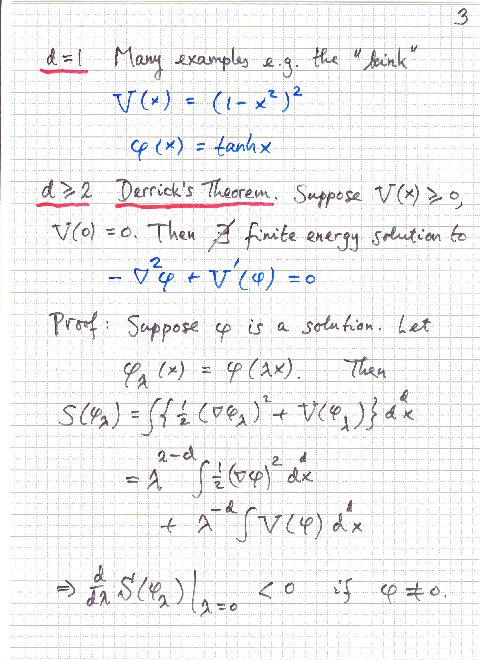 3
d=1 Many examples e.g. the "kink"
V(x) = (1-x²)²
φ(x) = tanhx
d⩾2 Derrick's Theorem. Suppose V(x)⩾0,
V(0)=0. Then ∄ finite energy solution to
-∇²φ + V'(φ) = 0
Proof: Suppose φ is a solution. Let
φ_λ(x) = φ(λx). Then
S(φ_λ) = ∫{½(∇φ_λ)² + V(φ_λ)}d^d x
= λ^{2-d} ∫½(∇φ)² d^d x
+ λ^{-d} ∫V(φ) d^d x
⇒ d/dλ S(φ_λ)|_{λ=0} < 0 if φ≠0.